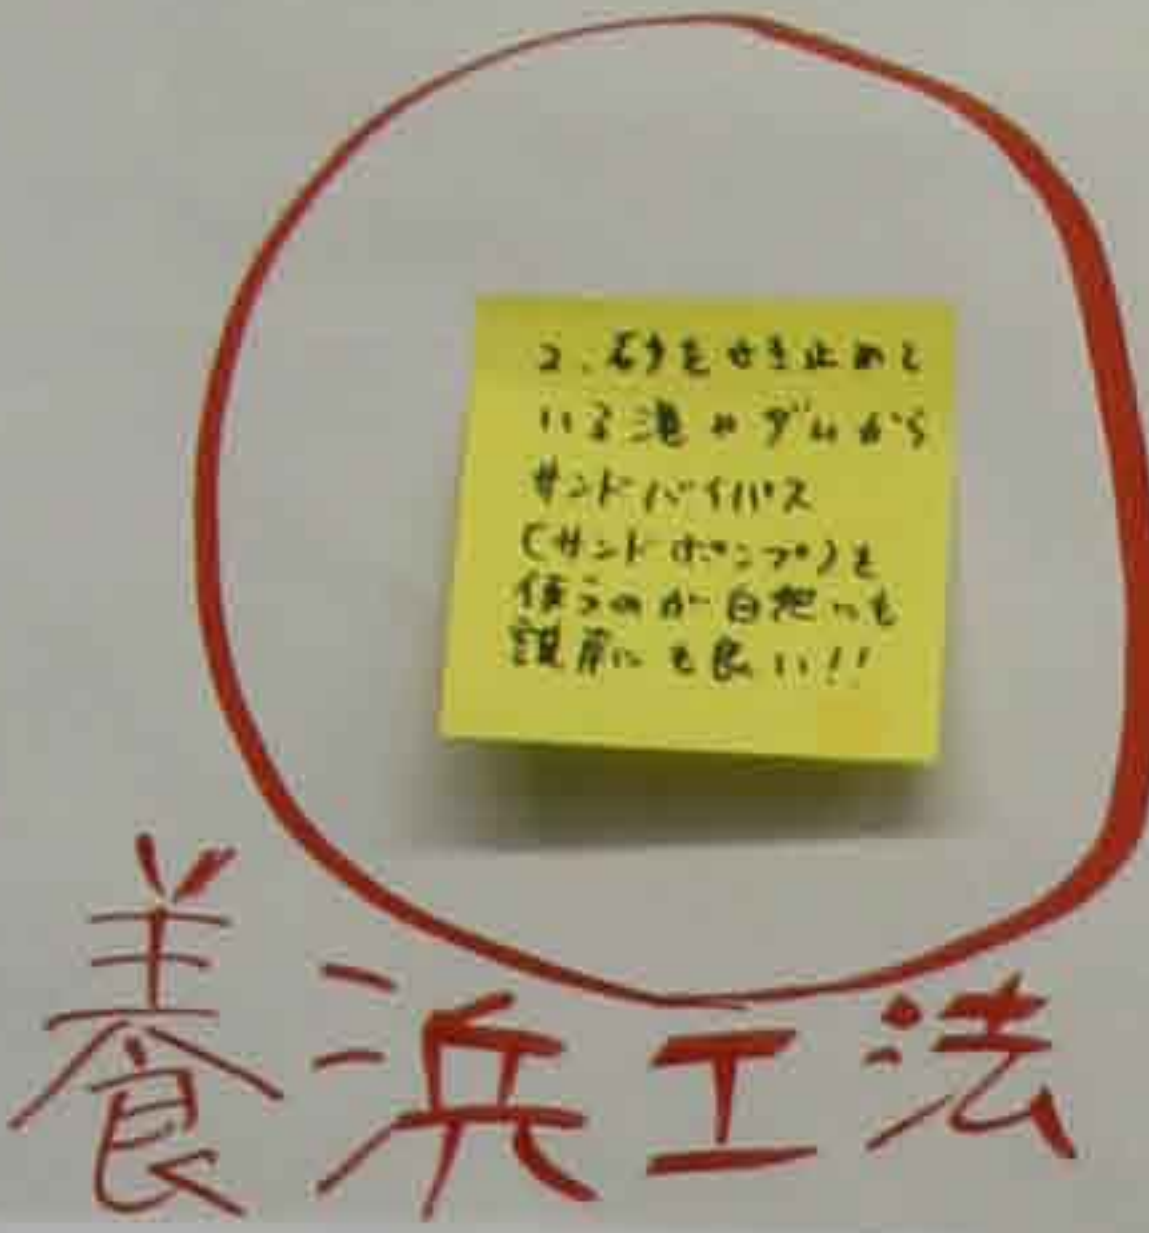 2. 砂をせき止めて
いる港やダムから
サンドバイパス
(サンドポンプ)を
使うのが自然にも
にも良い!!
養浜工法